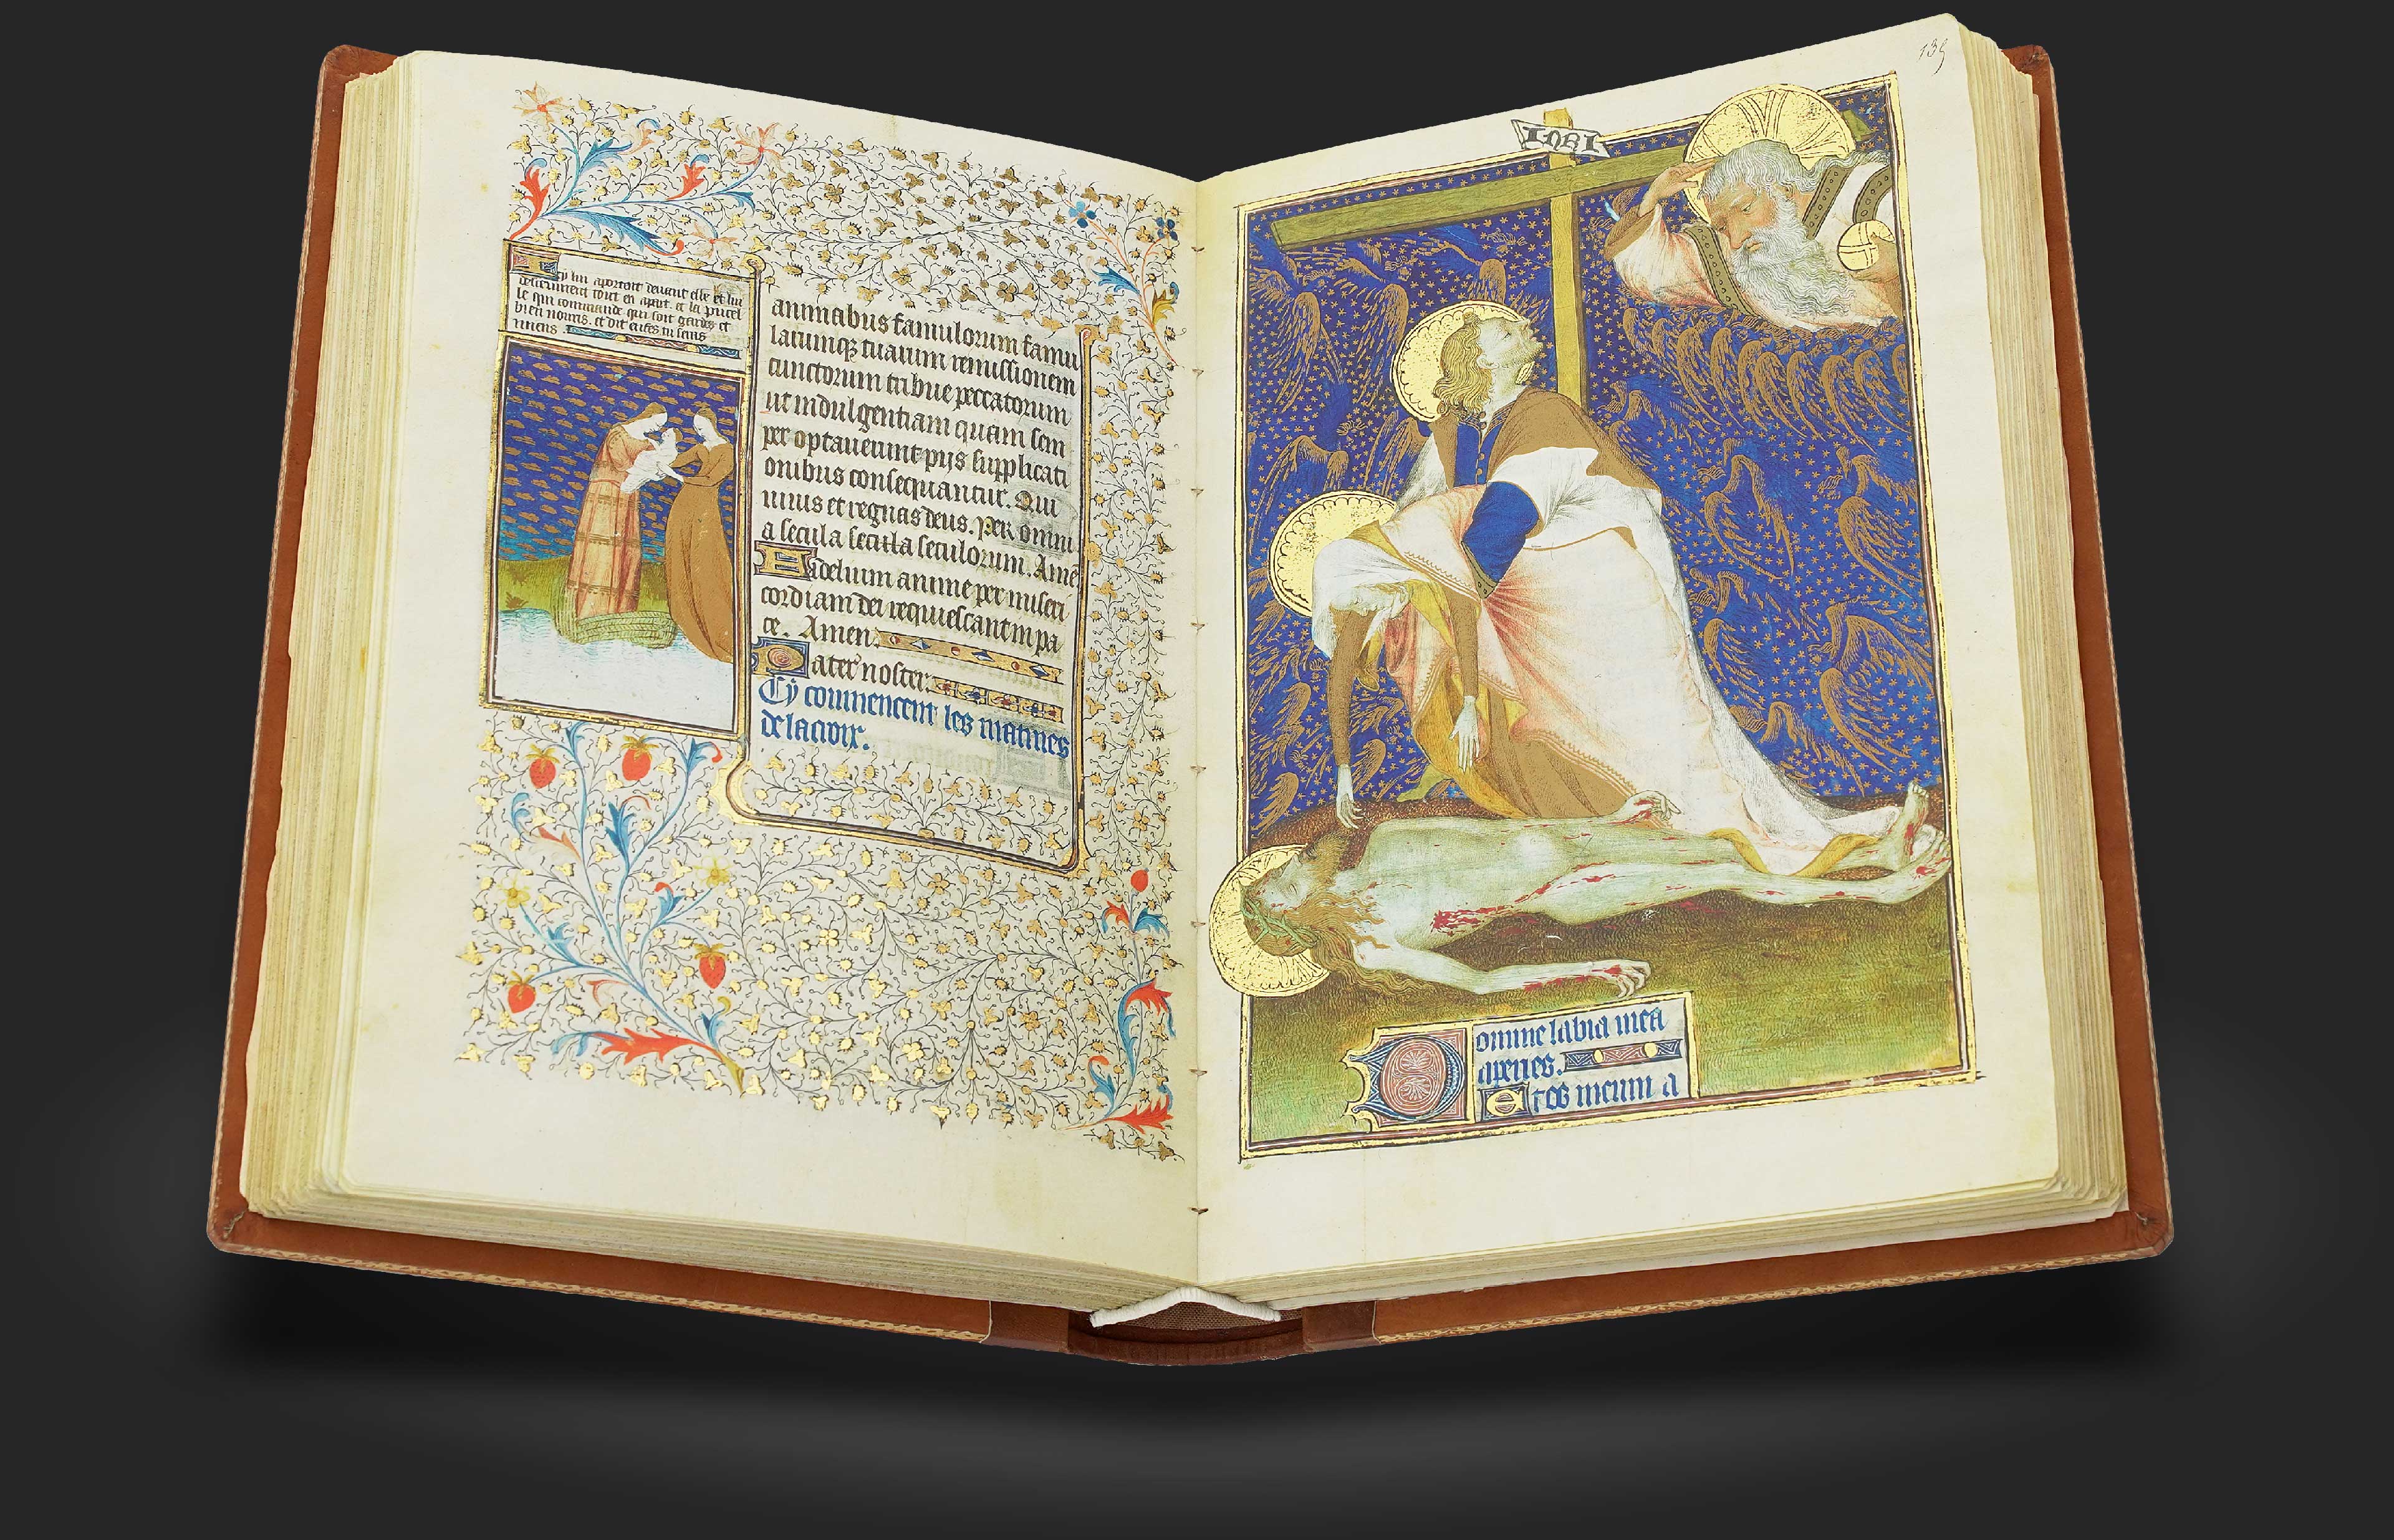 Cy lui aportent devant elle et lui
determinent tout en apart. et la pucel
le qui commande qui soit gardes et
bien nouris. et dit
animabus famulorum famu
larumq; tuarum remissionem
cunctorum tribue peccatorum
ut indulgentiam quam sem
per optaverunt pijs supplicati
onibus consequantur. Qui
vivis et regnas deus. Per omni
a secula secula seculorum. Ame
Fidelium anime per miseri
cordiam dei requiescant in pa
ce. Amen.
Pater noster.
Cy commencent les matines
de la croix.
139
INRI
Domine labia mea
aperies.
Et os meum a